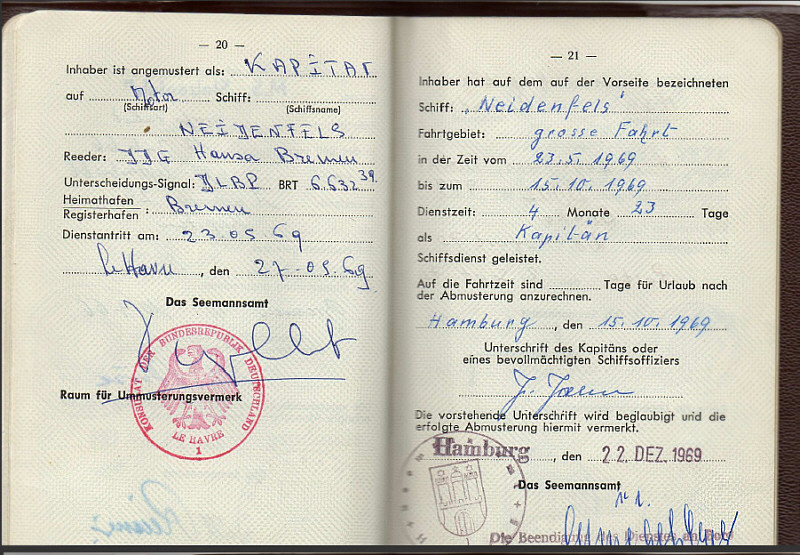 — 20 —
Inhaber ist angemustert als: KAPITÄN
auf Motor Schiff:
(Schiffsart) (Schiffsname)
NEIDENFELS
Reeder: DDG Hansa Bremen
Unterscheidungs-Signal: DLBP BRT 6.632 39.
Heimathafen
Registerhafen : Bremen
Dienstantritt am: 23.05.69
Le Havre, den 27.05.69
Das Seemannsamt
KONSULAT DER BUNDESREPUBLIK DEUTSCHLAND
LE HAVRE
1
Raum für Ummusterungsvermerk
— 21 —
Inhaber hat auf dem auf der Vorseite bezeichneten
Schiff: „Neidenfels"
Fahrtgebiet: grosse Fahrt
in der Zeit vom 23.5.1969
bis zum 15.10.1969
Dienstzeit: 4 Monate 23 Tage
als Kapitän
Schiffsdienst geleistet.
Auf die Fahrtzeit sind Tage für Urlaub nach
der Abmusterung anzurechnen.
Hamburg, den 15.10.1969
Unterschrift des Kapitäns oder
eines bevollmächtigten Schiffsoffiziers
Die vorstehende Unterschrift wird beglaubigt und die
erfolgte Abmusterung hiermit vermerkt.
Hamburg, den 22. DEZ. 1969
Das Seemannsamt
Die Beendigung des Dienstes an Bord